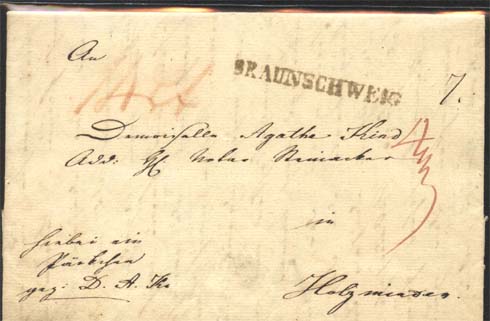 An
BRAUNSCHWEIG
7.
Demoiselle Agathe Kind
Add: H Notar
in
Holzminden.
hiebei ein
Päckchen
gez: D. A. K.